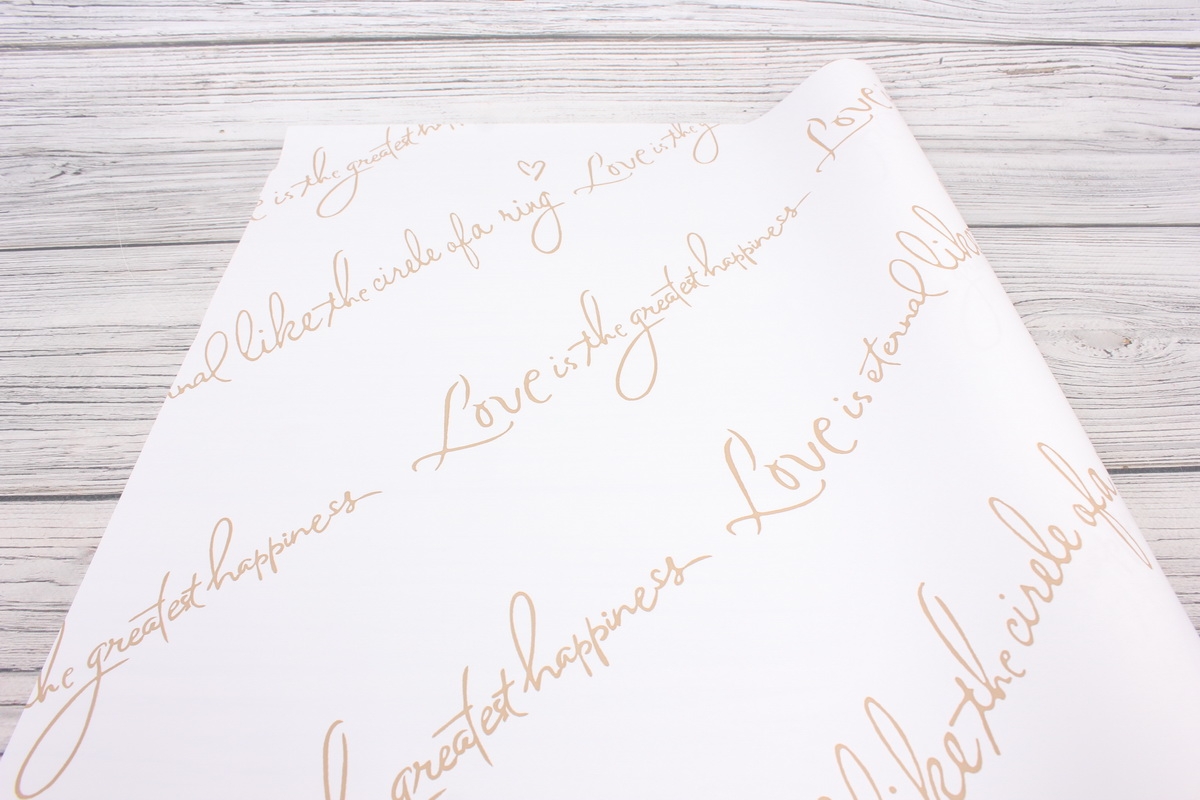 is the greatest
Love is the g
Love
nal like the circle of a ring
Love is the greatest happiness
Love is eternal like
he greatest happiness
greatest happiness
like the circle of a